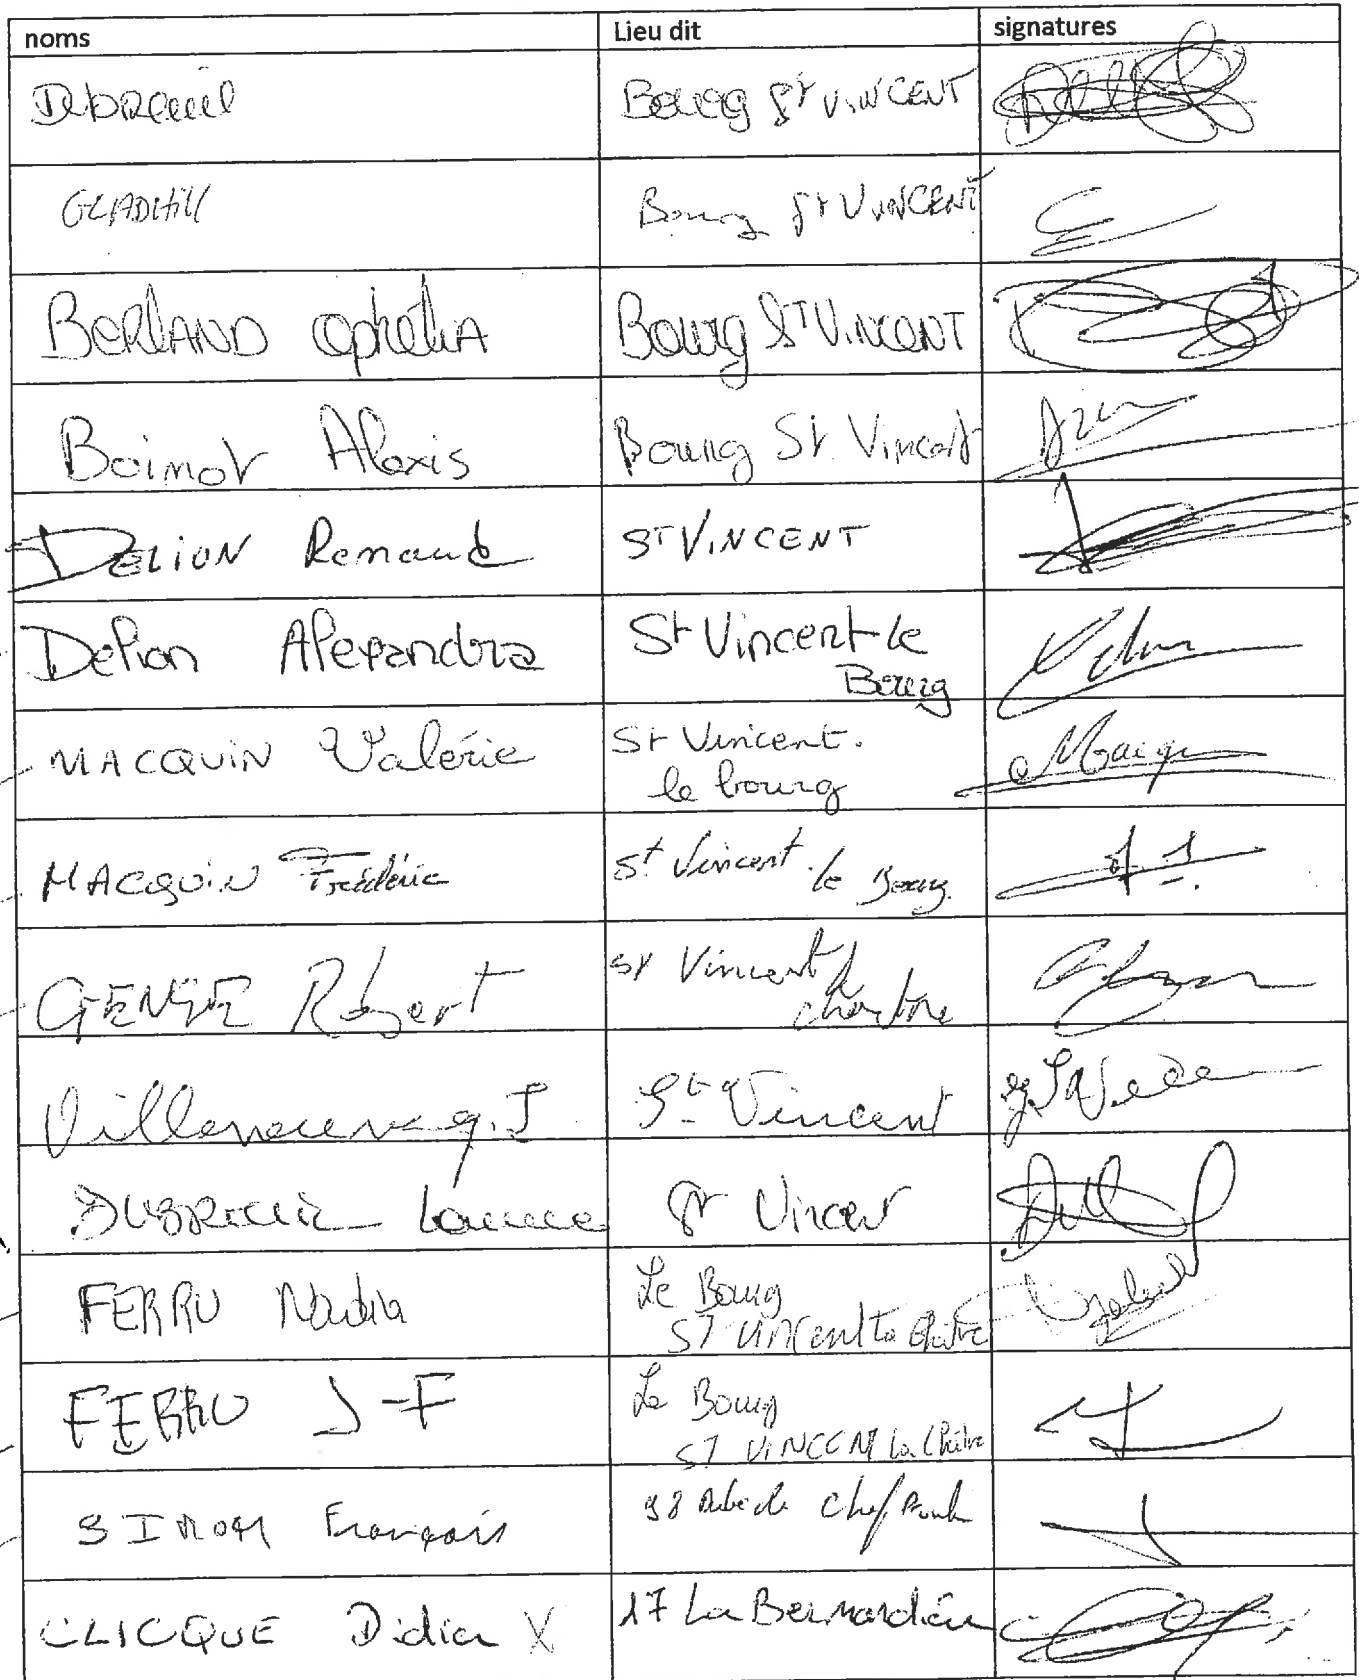 noms Lieu dit signatures
Debreuil Bourg St VINCENT
GLADHill Bourg St VINCENT
BERLAND Ophelia Bourg ST VINCENT
Boimot Alexis Bourg St Vincent
DELION Renaud ST VINCENT
Delion Alexandra St Vincent le
Bourg
MACQUIN Valérie St Vincent.
le bourg
MACQUIN Frédéric St Vincent le Bourg
Robert St Vincent la
chartre
Villeneuve g. J St Vincent
DUBREUIL St Vincent
FERRU Nadia Le Bourg
ST VINCENT la Châtre
FERRU J-F Le Bourg
ST VINCENT La Châtre
SIMON François
CLICQUE Didier X 17 La Bernardière